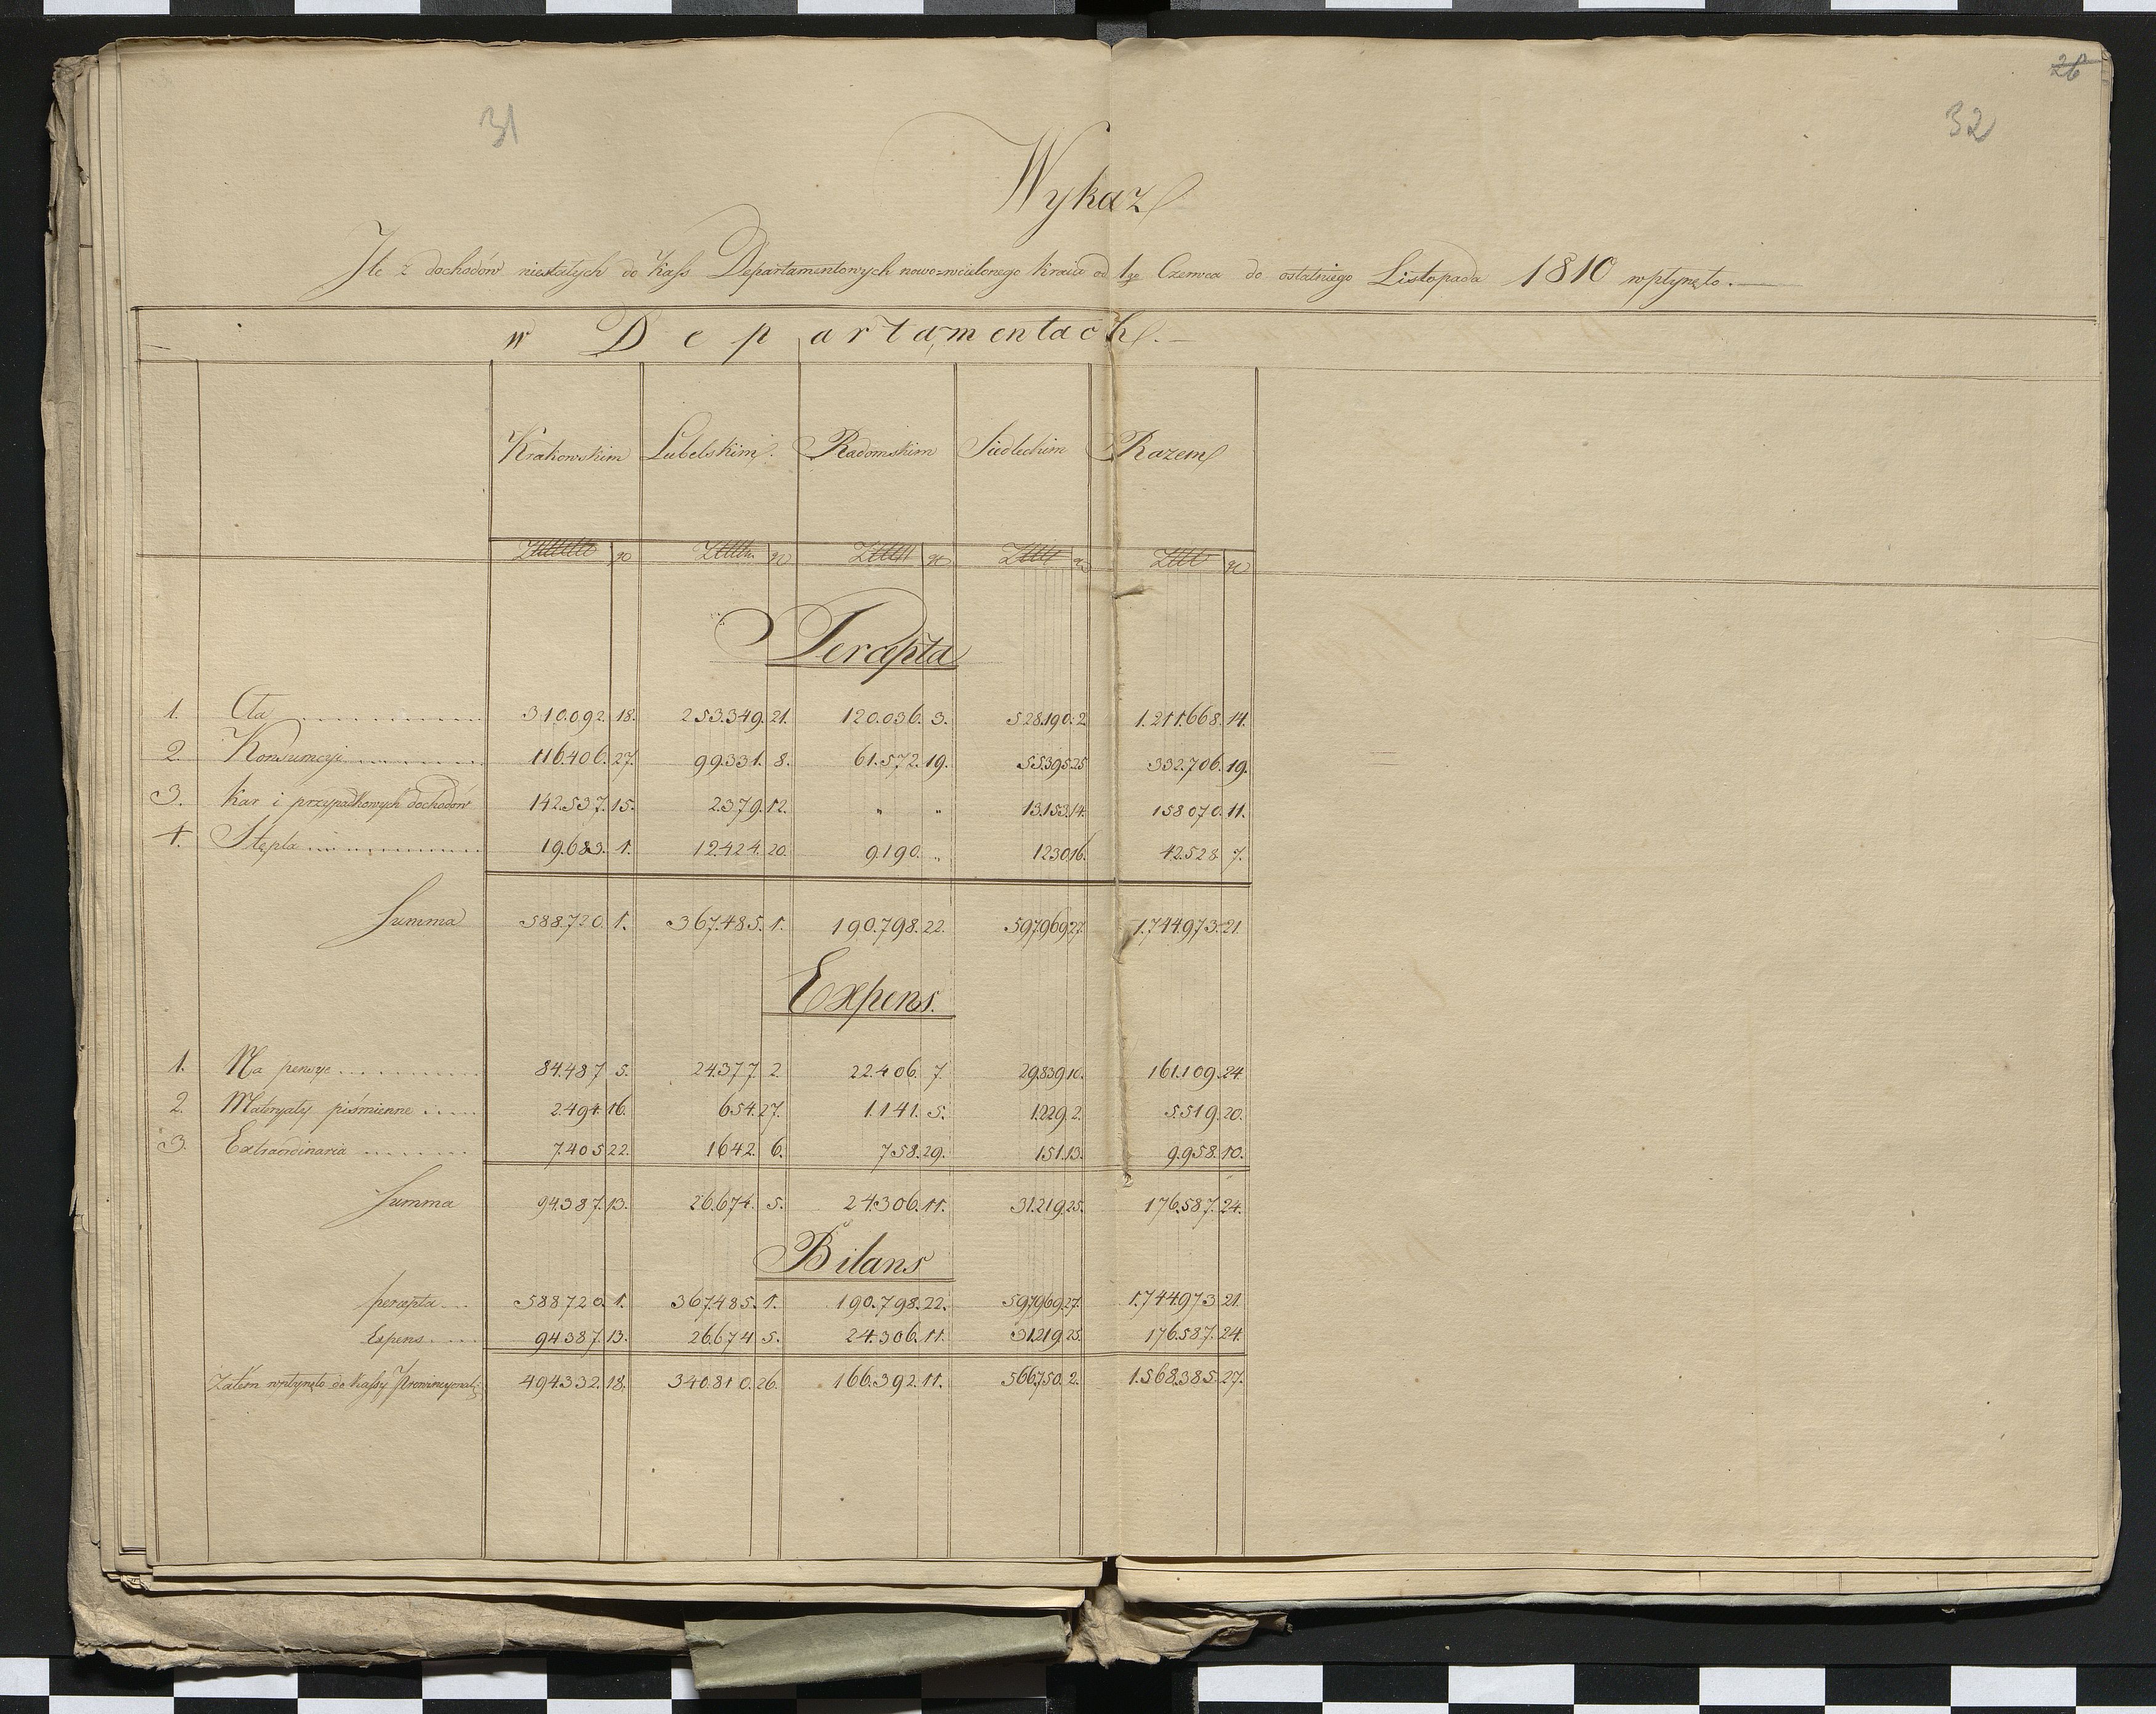 26
31
32
Wykaz
Ile z dochodów niestałych do Kass Departamentowych nowo=wcielonego Kraiu od 1go Czerwca do ostatniego Listopada 1810 wpłynęło.
w Departamentach.
Krakowskim Lubelskim. Radomskim Siedleckim Razem
gr gr gr gr gr
Percepta
1. Cła 310.092. 18. 253.349. 21. 120.036. 3. 528.190. 2. 1.211.668. 14.
2. Konsumcyi 116.406. 27. 99.331. 8. 61.572. 19. 55.395 25 332.706. 19.
3. Kar i przypadkowych dochodów 142.537. 15. 2.379. 12. " " 13.153. 14. 158070. 11.
4. Stępla 19.683. 1. 12.424. 20. 9.190. " 1230 16. 42.528 7.
Summa 588.720. 1. 367.485. 1. 190.798. 22. 597.969 27. 1.744.973. 21.
Expens.
1. Na pensye 84.487 5. 24.377 2. 22.406. 7. 29.839 10. 161.109. 24.
2. Materyały piśmienne 2.494. 16. 654. 27. 1.141. 5. 1.229. 2. 5.519. 20.
3. Extraordinaria 7.405 22. 1642. 6. 758. 29. 151. 13. 9.958. 10.
Summa 94.387. 13. 26.674. 5. 24.306. 11. 31.219. 25. 176.587. 24.
Bilans
percepta 588720. 1. 367.485. 1. 190.798. 22. 597.969. 27. 1.744.973 21.
Expens 94387. 13. 26.674 5. 24.306. 11. 31.219. 25. 176.587. 24.
Zatem wpłynęło do Kassy Prowincyonalj 494.332. 18. 340.810. 26. 166.392. 11. 566.750. 2. 1.568.385. 27.